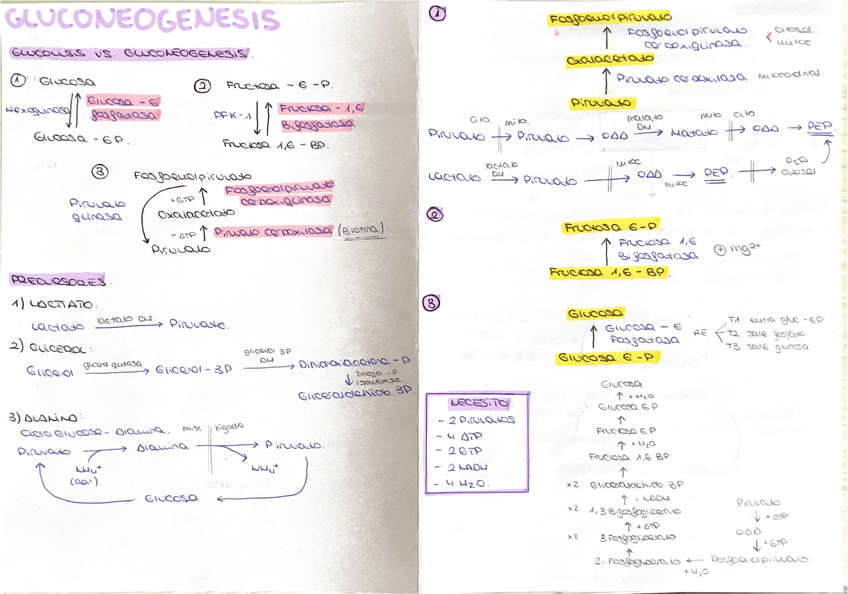 GLUCONEOGENESIS
GLUCOLISIS VS. GLUCONEOGENESIS.
① Glucosa
Hexoquinasa
Glucosa - 6
fosfatasa
Glucosa - 6P.
② Fructosa - 6 - P.
PFK-1
Fructosa - 1,6
Bifosfatasa
Fructosa 1,6 - BP.
③ Fosfoenolpiruvato
Piruvato
quinasa
+GTP
Fosfoenolpiruvato
carboxiquinasa
Oxalacetato
- ATP
Piruvato carboxilasa (Biotina)
Piruvato
PRECURSORES
1) LACTATO:
Lactato lactato DH Piruvato.
2) GLICEROL:
Glicerol glicerol quinasa Glicerol - 3P glicerol 3P DH Dihidroxiacetona - P
triosa - P
isomerasa
Gliceraldehido 3P.
3) ALANINA:
Ciclo Glucosa - Alanina. musc hígado
Piruvato Alanina Piruvato.
NH4+
(aa')
NH4+
Glucosa
①
Fosfoenolpiruvato
Fosfoenolpiruvato
carboxiquinasa
citosol
mitoc
Oxalacetato
Piruvato carboxilasa mitocondrial
Piruvato
cito. mito. malato DH mito cito
Piruvato Piruvato OAA Malato OAA PEP
lactato DH mitoc PEP citosol
Lactato Piruvato OAA mitoc PEP
②
Fructosa 6-P.
Fructosa 1,6
Bifosfatasa
+ Mg2+
Fructosa 1,6 - BP.
③
Glucosa
Glucosa - 6
Fosfatasa
RE
T1 entra gluc - 6P
T2 sale fosfato
T3 sale glucosa
Glucosa 6-P
NECESITO:
- 2 Piruvatos
- 4 ATP
- 2 GTP
- 2 NADH
- 4 H2O.
Glucosa
+ H2O
Glucosa 6P
Fructosa 6P
+ H2O
Fructosa 1,6 BP
x2 Gliceraldehido 3P
+ NADH
x2 1,3 Bifosfoglicerato
+ ATP
x2 3 Fosfoglicerato
2- Fosfoglicerato ← Fosfoenolpiruvato
+H2O
Piruvato
+ ATP
OAA
+ GTP